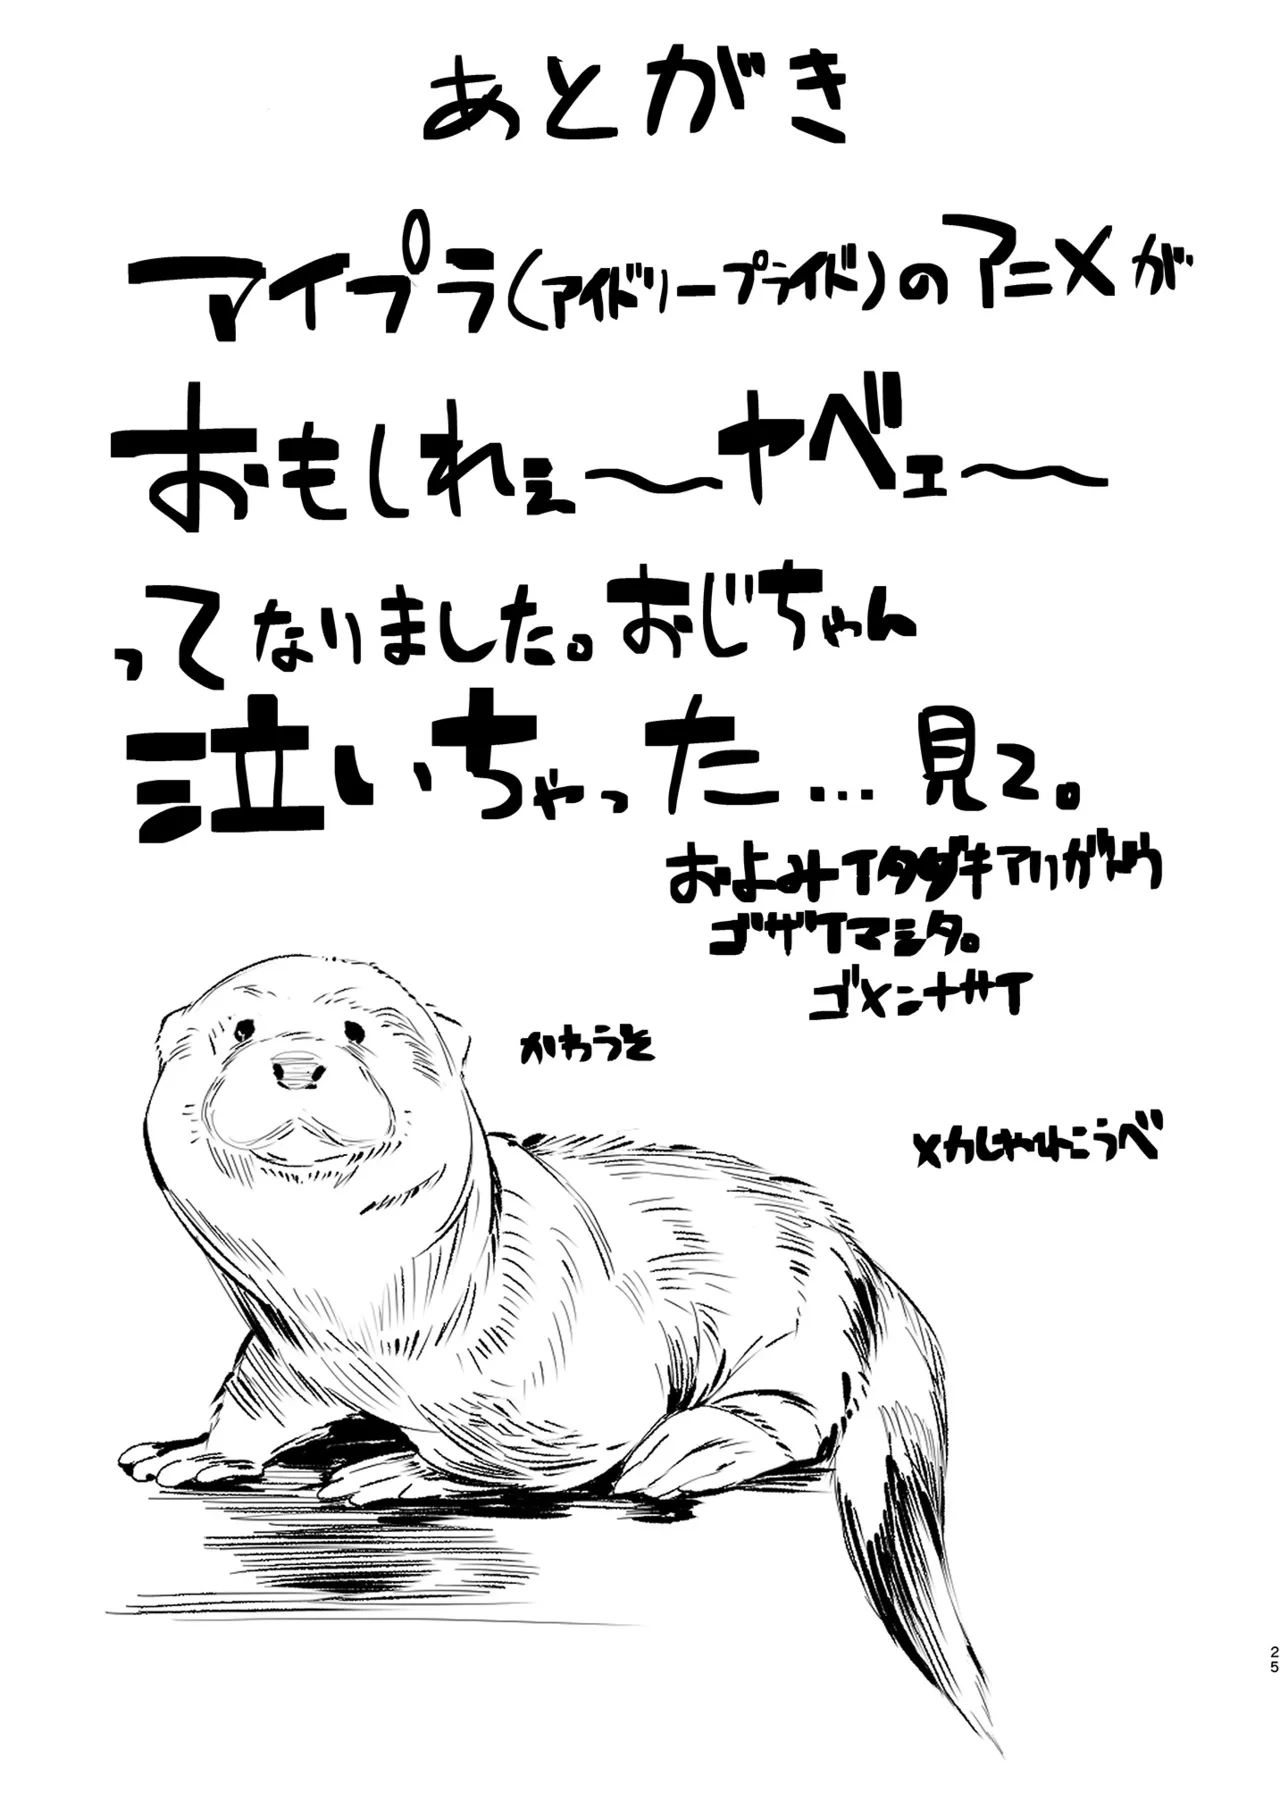 あとがき
アイプラ(アイドリープライド)のアニメが
おもしれぇ〜ヤベェ〜
ってなりました。おじちゃん
泣いちゃった…見て。
およみイタダキアリガトウ
ゴザイマシタ。
ゴメンナサイ
かわうそ
メカしゃひこうべ
25